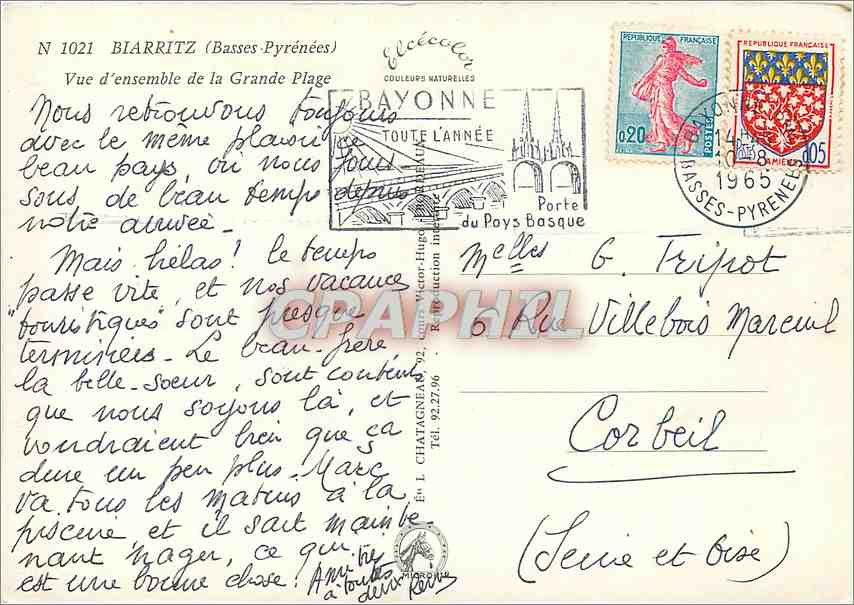 N 1021 BIARRITZ (Basses-Pyrénées)
Vue d'ensemble de la Grande Plage
Elcécolor
COULEURS NATURELLES
BAYONNE
TOUTE L'ANNÉE
Porte
du Pays Basque
REPUBLIQUE FRANÇAISE
0,20
POSTES
REPUBLIQUE FRANÇAISE
AMIENS
0,05
14H
1965
BASSES-PYRENEES
Nous retrouvons toujours
avec le même plaisir ce
beau pays, où nous jouis
sons, de beau temps depuis
notre arrivée -
Mais hélas ! le temps
passe vite, et nos vacances
"touristiques" sont presque
terminées - Le beau-frère
la belle-soeur, sont contents
que nous soyons là, et
voudraient bien que ça
dure un peu plus - Marc
va tous les matins à la
piscine, et il sait mainte-
nant nager, ce qui
est une bonne chose !
à toutes
deux
Elles L. CHATAGNEAU, 92, Cours Victor-Hugo, BORDEAUX
Tél. 92.27.96 - Reproduction interdite
Melles G. Tripot
6 Rue Villebois Mareuil
Corbeil
(Seine et Oise)
CPAPHIL